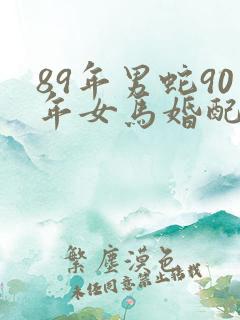 89年男蛇90
年女马婚配
繁尘漠色
未经同意禁止搭载